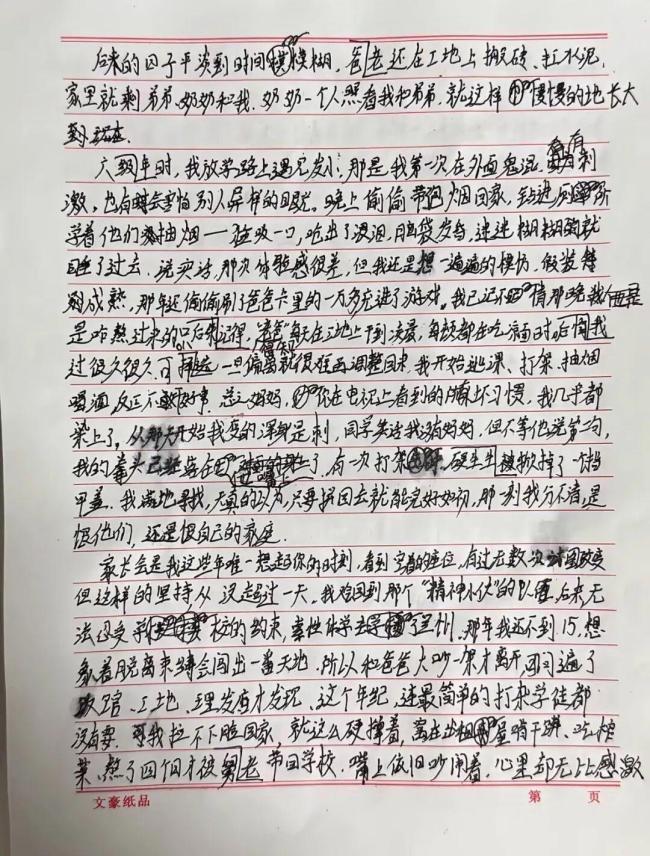 后来的日子平淡到时间模糊，爸爸还在工地上搬砖、扛水泥，
家里就剩弟弟、奶奶和我，奶奶一个人照看我和弟弟，就这样慢慢的地长大
到现在
六年级时，我放学路上遇见发小，那是我第一次在外面鬼混，有刺
激，也有害怕别人异样的眼光。晚上偷偷带包烟回家，钻进厕所
学着他们抽烟一一猛吸一口，呛出了眼泪，脑袋发昏，迷迷糊糊就
睡了过去，说实话，那次体验感很差，但我还是想一遍遍的模仿，假装
成熟，那年还偷偷刷了爸爸卡里的一万多充进了游戏。我已记不清那晚我
是咋熬过来的 只记得，爸爸每天在工地上干到凌晨 每顿都在吃 后悔我
过很久很久，可 一旦偏离就很难再调整回来，我开始逃课、打架、抽烟
喝酒 反正不干好事，总之妈妈，你在电视上看到的 坏习惯，我几乎都
染上了。从那天开始我变的浑身是刺，同学笑话我没有妈妈，但不等他说第二句，
我的拳头已经落在 了，有一次打架 硬生生被掀掉了一个指
甲盖，我满地寻找，天真的以为只要捡回去就能完好如初，那一刻我分不清，是
恨他们，还是恨自己的家庭.
家长会是我这些年唯一想起你的时刻，看到空着的座位，有过无数次 改变
但这样的坚持从没超过一天。我难回到那个"精神小伙"的队伍，后来无
法忍受学校的约束，索性休学去了兰州，那年我还不到15，想
象着脱离束缚会闯出一番天地，所以和爸爸大吵一架才离开，可问遍了
饭馆、工地、理发店才发现，这个年纪，连最简单的打杂学徒都
没有要，可我拉不下脸回家，就这么硬撑着，窝在出租屋啃干饼、吃榨
菜、熬了四个月才被舅老爷带回学校，嘴上依旧吵闹着，心里却无比感激
文豪纸品
第 页